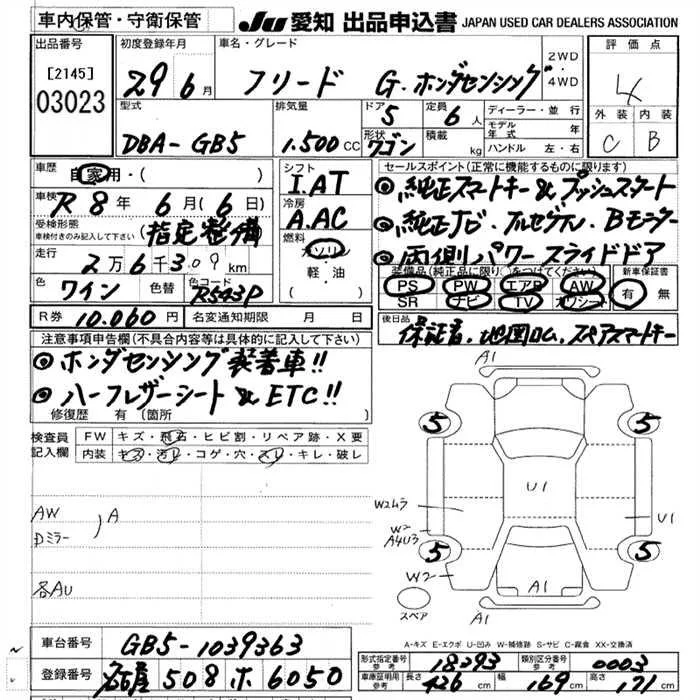 車内保管・守衛保管
JU 愛知 出品申込書 JAPAN USED CAR DEALERS ASSOCIATION
出品番号
[2145]
03023
初度登録年月
29年6月
車名・グレード
フリード G・ホンダセンシング
2WD
・
4WD
評価点
4
外装 内装
C B
型式
DBA-GB5
排気量
1.500cc
ドア
5
形状
ワゴン
定員
6人
積載
kg
ディーラー・並行
モデル年式 年
ハンドル 左・右
車歴
自家用・( )
車検
R8年6月(6日)
受検形態
車検付きのみ記入して下さい
(指定整備)
走行
2万6千309km
色
ワイン
色替
色コード
R543P
シフト
I.AT
冷房
A.AC
燃料
ガソリン
軽・油
セールスポイント(正常に機能するものに限ります)
◎純正スマートキー&プッシュスタート
◎純正ナビ・フルセグTV・Bモニター
◎両側パワースライドドア
装備品(純正品に限り○をつけてください)
PS PW エアB AW
SR ナビ TV カワシート
新車保証書
有 無
R券 10.060円 名変通知期限 月 日
後日品
保証書・地図ROM・スペアスマートキー
注意事項申告欄(不具合内容等は具体的に記入して下さい)
◎ホンダセンシング装着車!!
◎ハーフレザーシート&ETC!!
修復歴 有 (箇所
検査員
記入欄
FW キズ・飛石・ヒビ割・リペア跡・X要
内装 キズ・汚レ・コゲ・穴・スレ・キレ・破レ
AW
Dミラー
A
各AU
A1
5 5
U1
W2ムラ
U1
W2
A4U3
5 5
W2
A1
スペア
A1
A-キズ E-エクボ U-凹み W-補修跡 S-サビ C-腐食 XX-交換済
車台番号 GB5-1039363
登録番号 名古屋 508 ホ 6050
形式指定番号
参考
18293
類別区分番号
参考
0003
車庫証明用
参考
長さ 426cm 幅 169cm 高さ 171cm